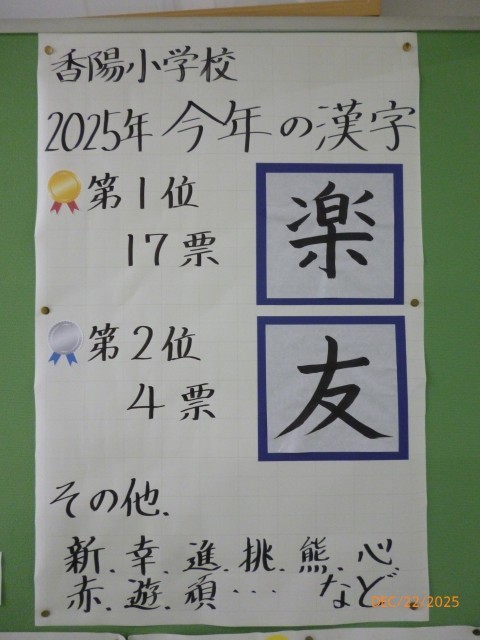 香陽小学校
2025年 今年の漢字
第1位
17票
楽
第2位
4票
友
その他.
新.幸.進.挑.熊.心
赤.遊.頑… など
DEC/22/2025